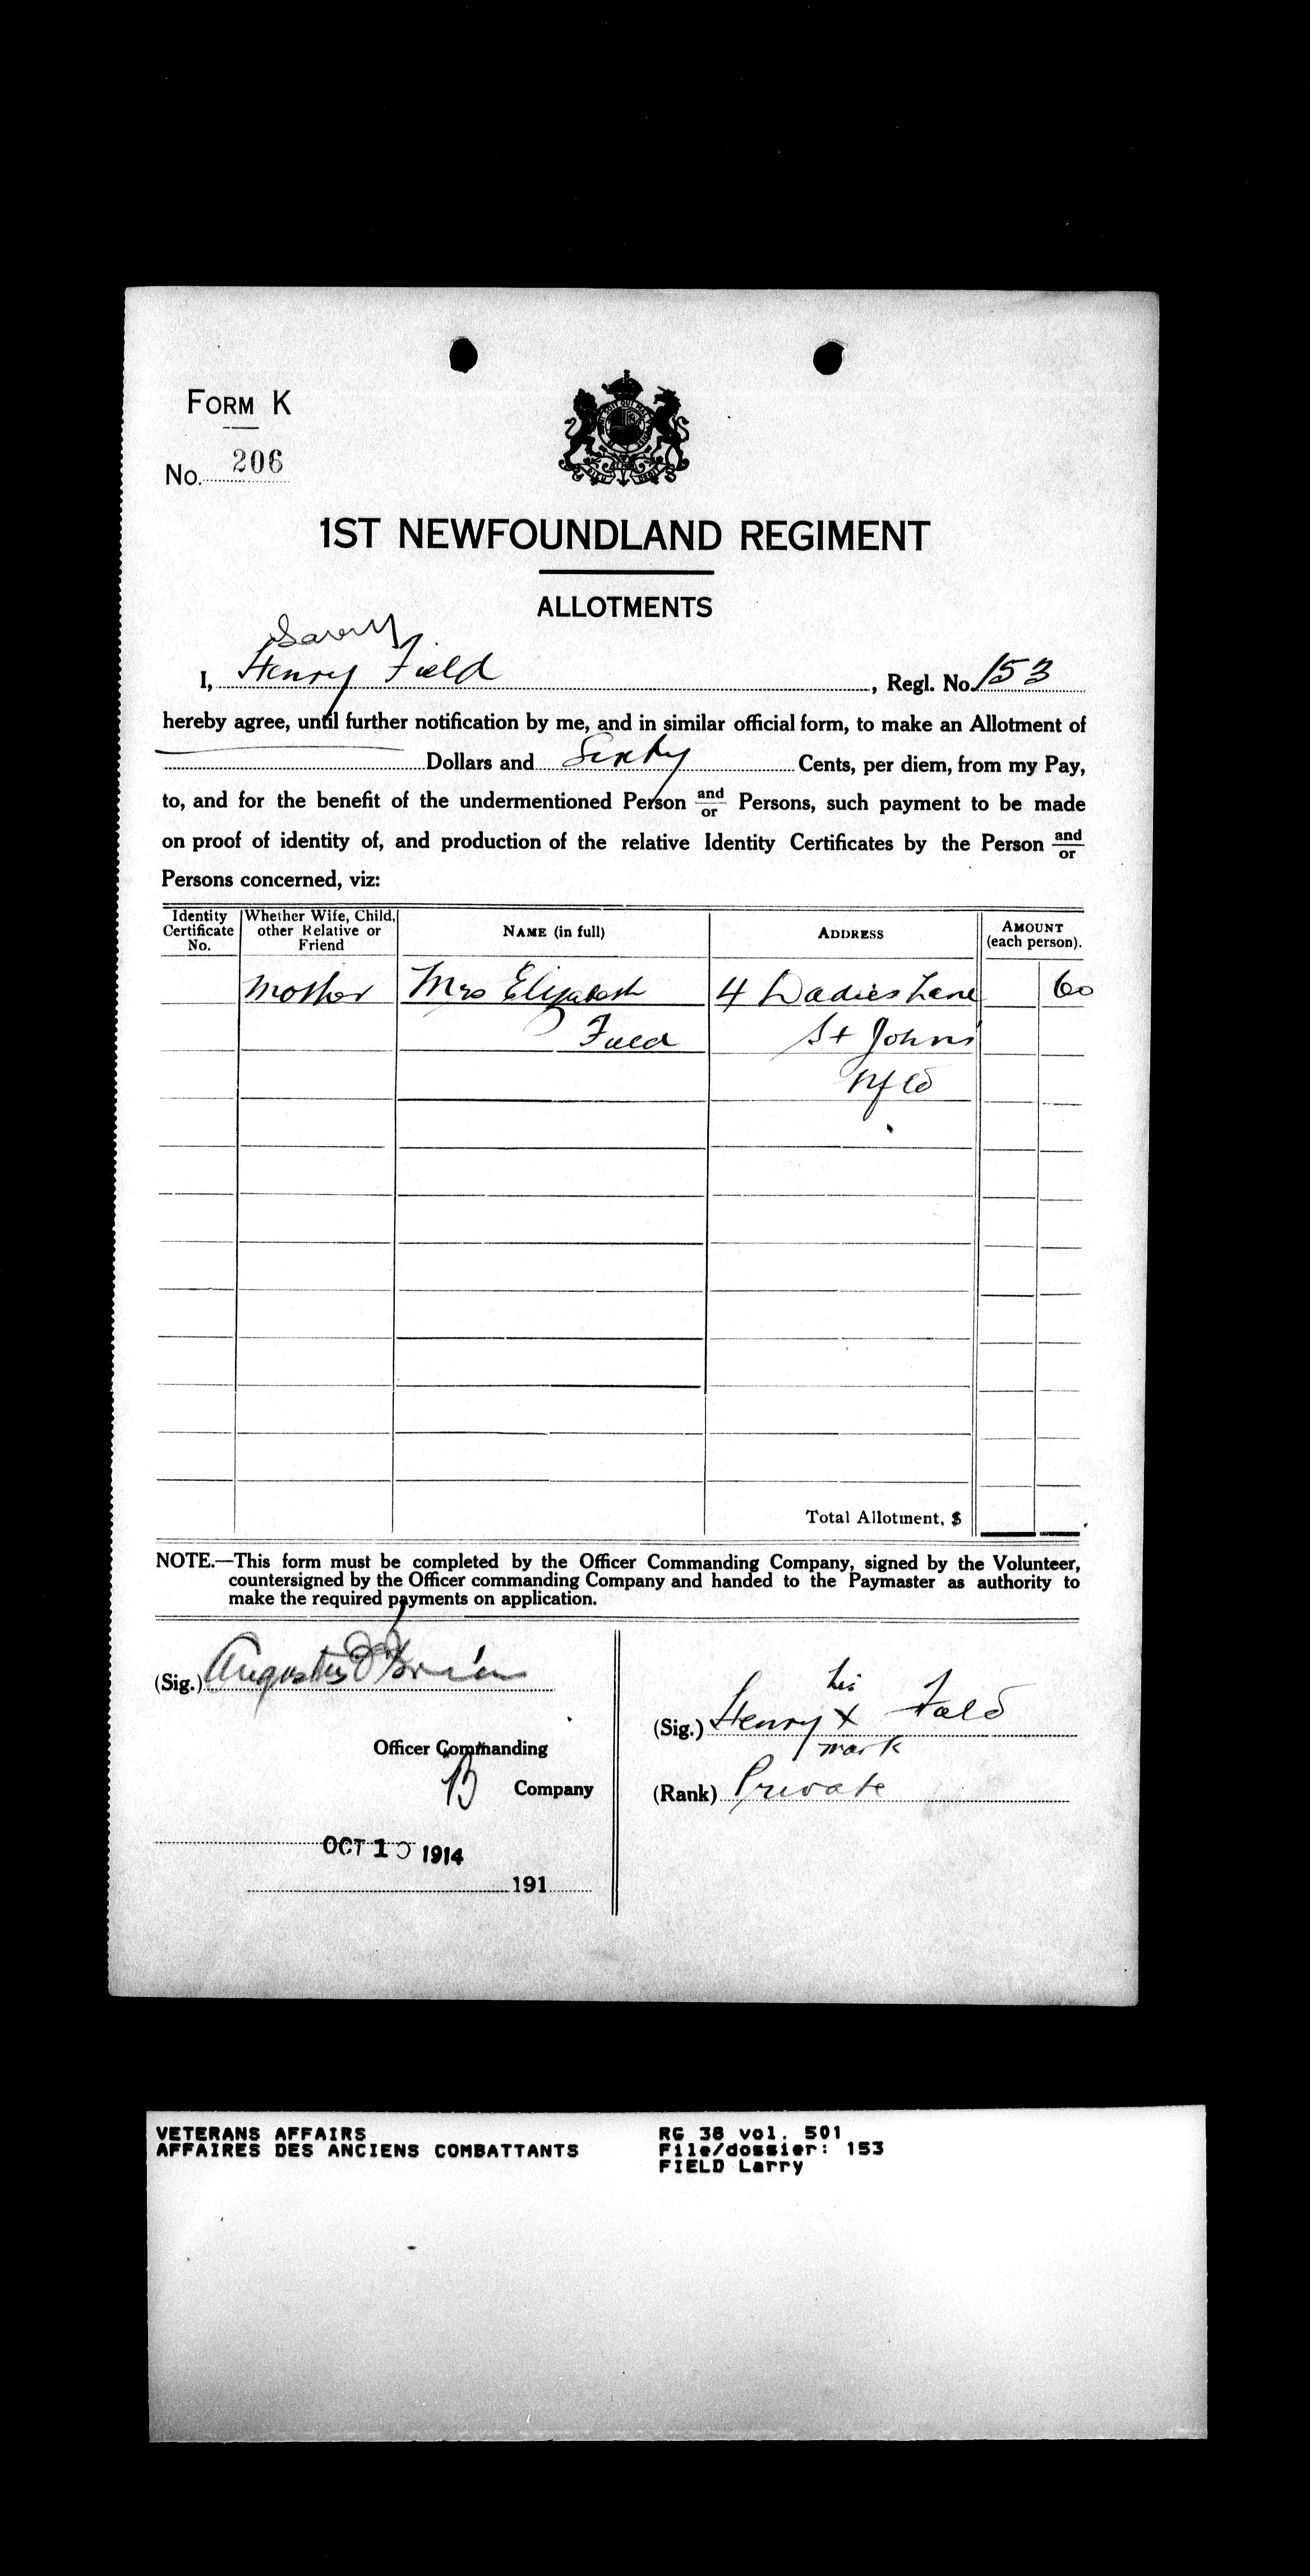 FORM K
No. 206
1ST NEWFOUNDLAND REGIMENT
ALLOTMENTS
I, Henry Field, Regl. No. 153
hereby agree, until further notification by me, and in similar official form, to make an Allotment of
Dollars and Sixty Cents, per diem, from my Pay,
to, and for the benefit of the undermentioned Person and/or Persons, such payment to be made
on proof of identity of, and production of the relative Identity Certificates by the Person and/or
Persons concerned, viz:
Identity Certificate No. Whether Wife, Child, other Relative or Friend NAME (in full) ADDRESS AMOUNT (each person).
Mother Mrs Elizabeth 4 Dadies Lane 60
Field St Johns
Nfld
Total Allotment, $
NOTE.—This form must be completed by the Officer Commanding Company, signed by the Volunteer,
countersigned by the Officer commanding Company and handed to the Paymaster as authority to
make the required payments on application.
(Sig.) Augustus O'Brien
Officer Commanding
B Company
OCT 10 1914
191
his
(Sig.) Henry X Field
mark
(Rank) Private
VETERANS AFFAIRS RG 38 vol. 501
AFFAIRES DES ANCIENS COMBATTANTS File/dossier: 153
FIELD Larry